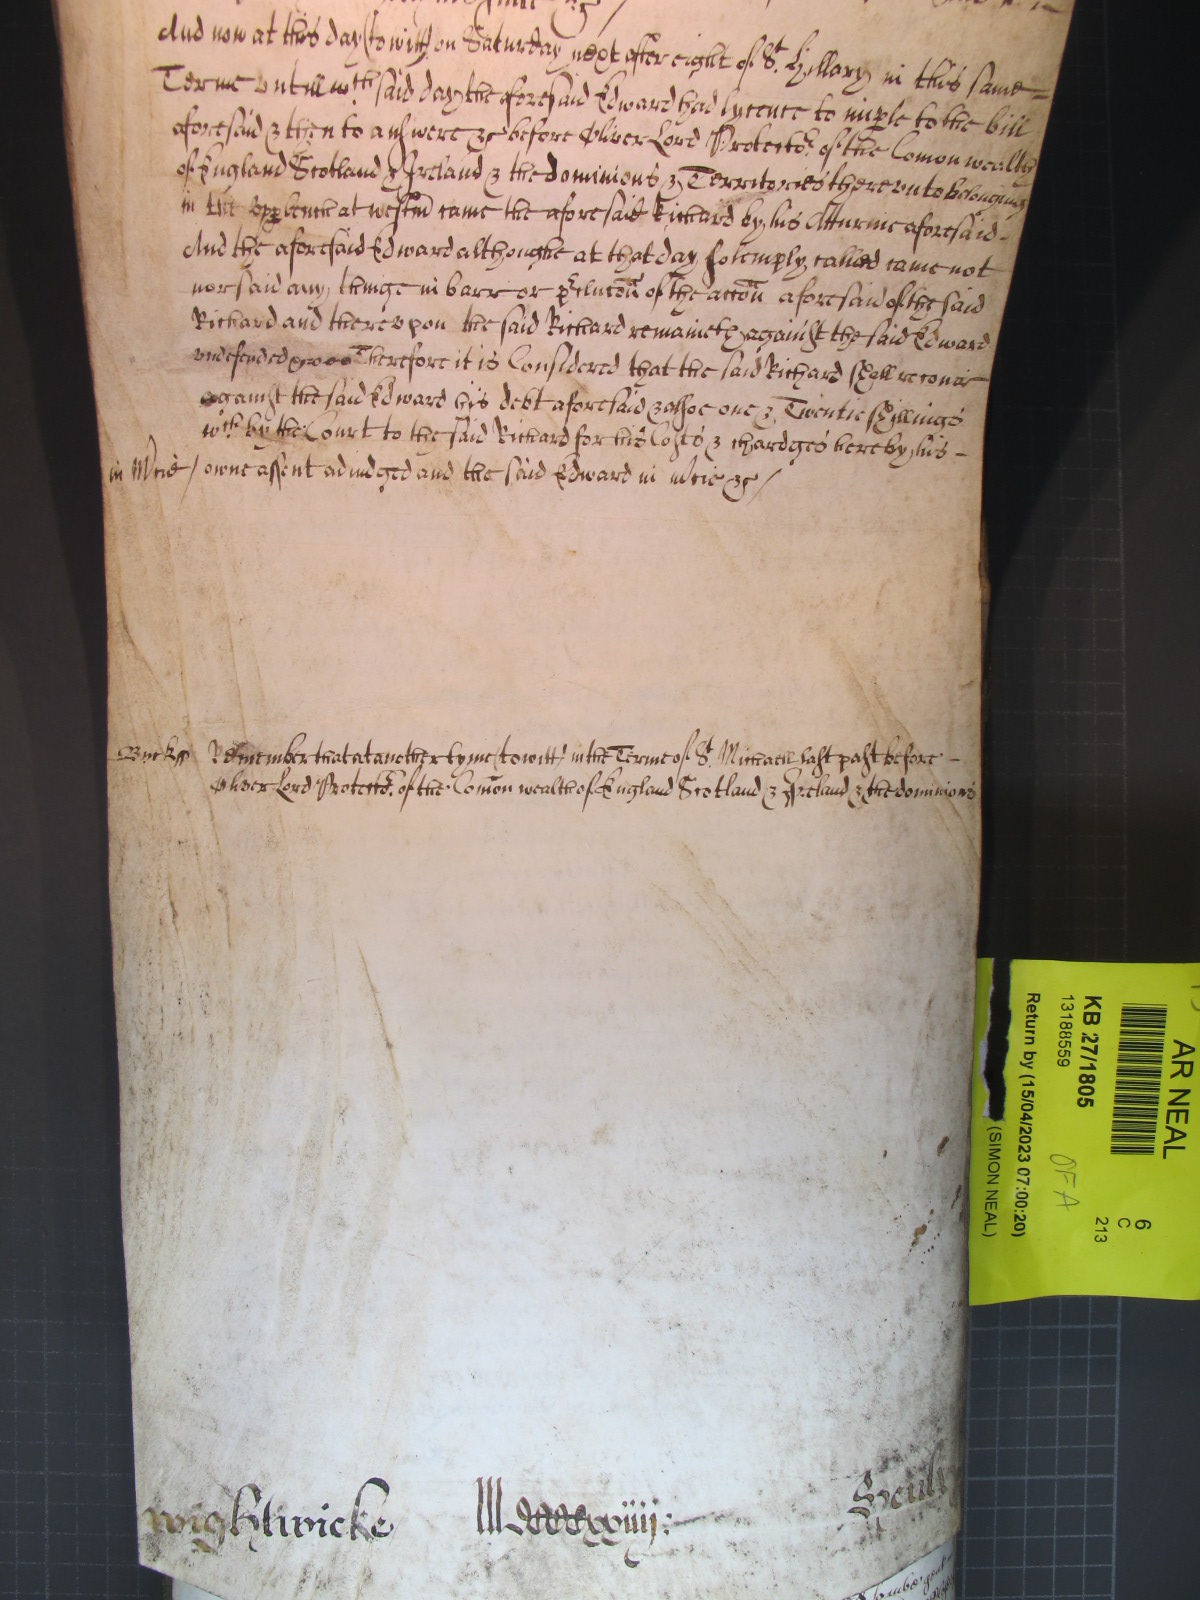 And now at this day (to witt) on Saturday next after eight of St. Hillary in this same
Terme untill wch said day the aforesaid Edward had lycence to imple to the bill
aforesaid & then to answere &c before Oliver Lord Protector of the Comon wealth
of England Scotland & Ireland & the dominions & Territories thereunto belonging
in the upp bench at westm came the aforesaid Richard by his Atturnie aforesaid
And the aforesaid Edward althoughe at that day solemply called came not
nor said any thinge in barr or p'clucon of the accon aforesaid of the said
Richard and thereupon the said Richard remaineth against the said Edward
undefended Therefore it is Considered that the said Richard shall recouer
against the said Edward his debt aforesaid & alsoe one & Twentie shillings
wch by the Court to the said Richard for his Costs & chardges hereby his
in Mcie / owne assent adiudged and the said Edward in mcie &c /
Bucks Remember that at another tyme (to witt) in the Terme of St. Michaell last past before
Oliver Lord Protector of the Comon wealth of England Scotland & Ireland & the dominions
Wightwicke
AR NEAL
KB 27/1805
13188559
Return by (15/04/2023 07:00:20)
(SIMON NEAL)
OFA
6
C
213